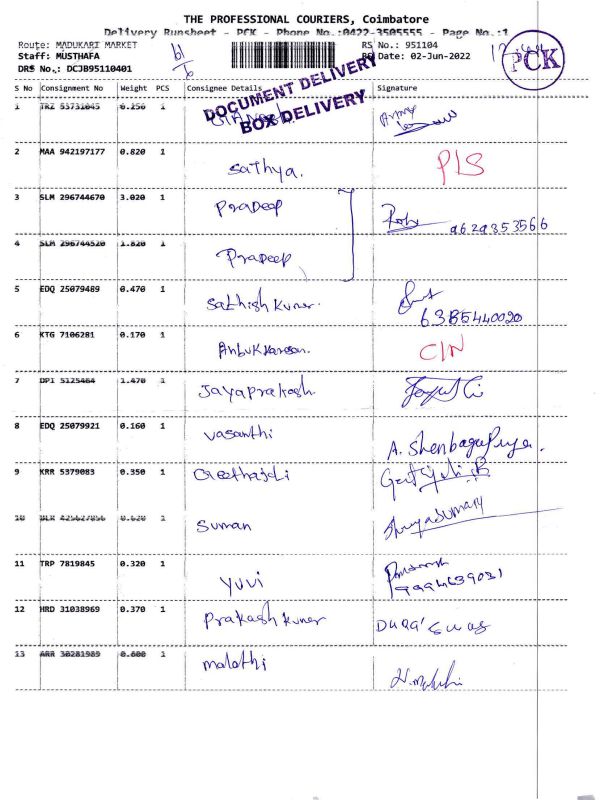 THE PROFESSIONAL COURIERS, Coimbatore
Delivery Runsheet - PCK - Phone No.:0422-3505555 - Page No.:1
Route: MADUKARI MARKET RS No.: 951104
Staff: MUSTHAFA Date: 02-Jun-2022
DRS No.: DCJB95110401
PCK
DOCUMENT DELIVERY
BOX DELIVERY
S No Consignment No Weight PCS Consignee Details Signature
1 TRZ 53731045 0.250 1
2 MAA 942197177 0.820 1 Sathya. PLS
3 SLM 296744670 3.020 1 Pradeep 9629353566
4 SLM 296744520 1.820 1 Pradeep
5 EDQ 25079489 0.470 1 Sathish Kumar. 6385440020
6 KTG 7106281 0.170 1 C/N
7 DPI 5125464 1.470 1 Jayaprakash.
8 EDQ 25079921 0.160 1 Vasanthi A. Shenbagapriya.
9 KRR 5379083 0.350 1
10 1 Suman
11 TRP 7819845 0.320 1 Yuvi 9994639031
12 HRD 31038969 0.370 1 Prakash Kumar
13 ARR 30281989 0.600 1 malathi